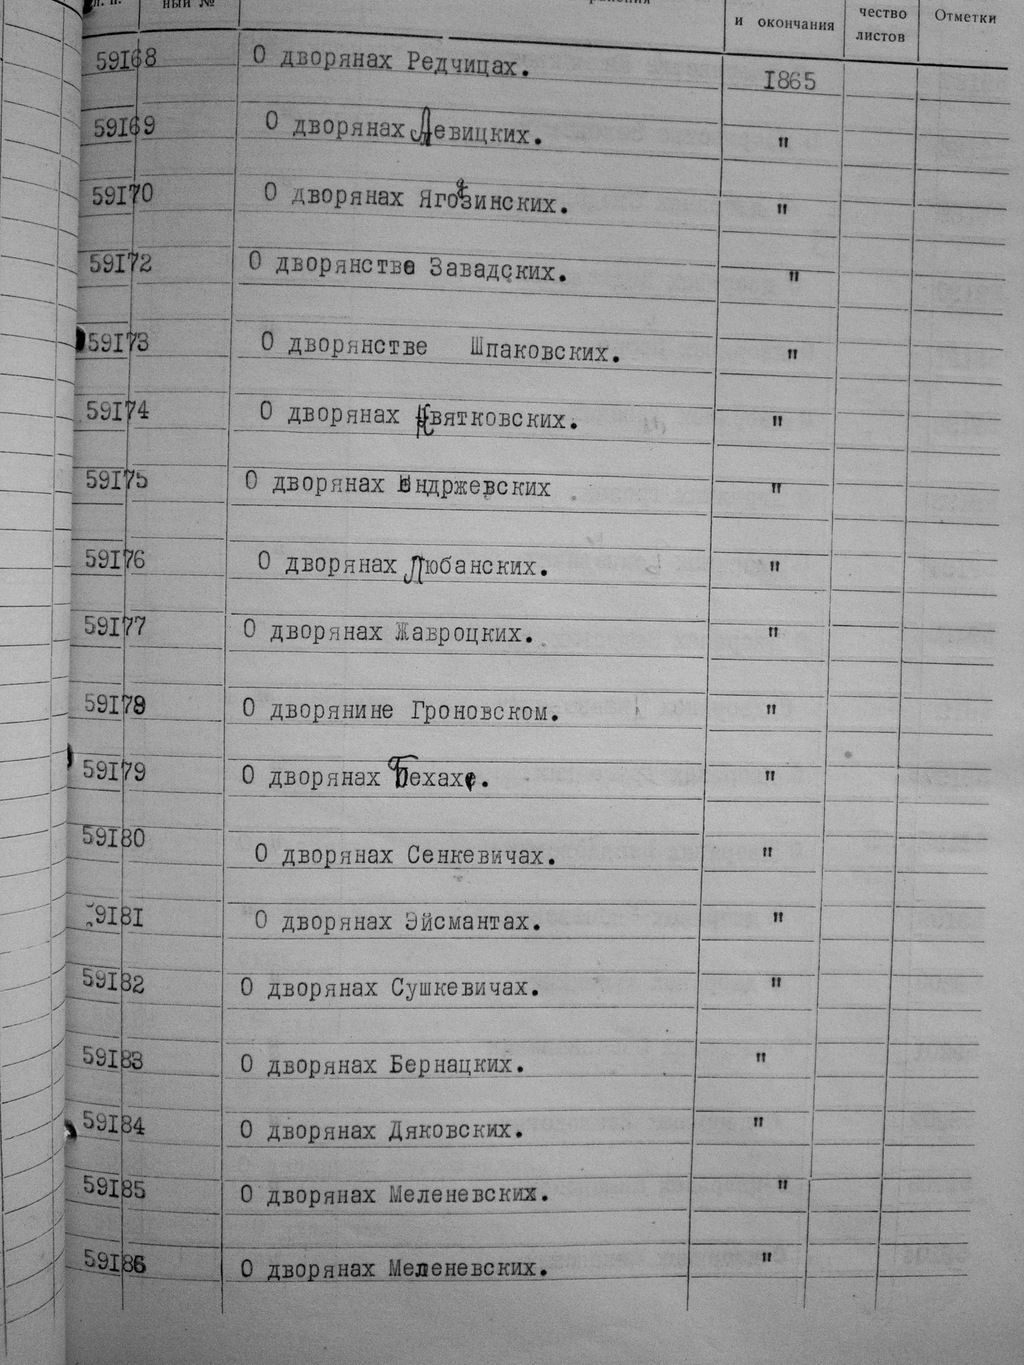 п. п.
ный №
и окончания
чество
листов
Отметки
59I68 О дворянах Редчицах. I865
59I69 О дворянах Левицких. "
59I70 О дворянах "
59I72 О дворянстве Завадских. "
59I73 О дворянстве Шпаковских. "
59I74 О дворянах Квятковских. "
59I75 О дворянах Ендржевских "
59I76 О дворянах Любанских. "
59I77 О дворянах Жавроцких. "
59I78 О дворянине Гроновском. "
59I79 О дворянах "
59I80 О дворянах Сенкевичах. "
59I8I О дворянах Эйсмантах. "
59I82 О дворянах Сушкевичах. "
59I83 О дворянах Бернацких. "
59I84 О дворянах Дяковских. "
59I85 О дворянах Меленевских. "
59I86 О дворянах Меленевских. "